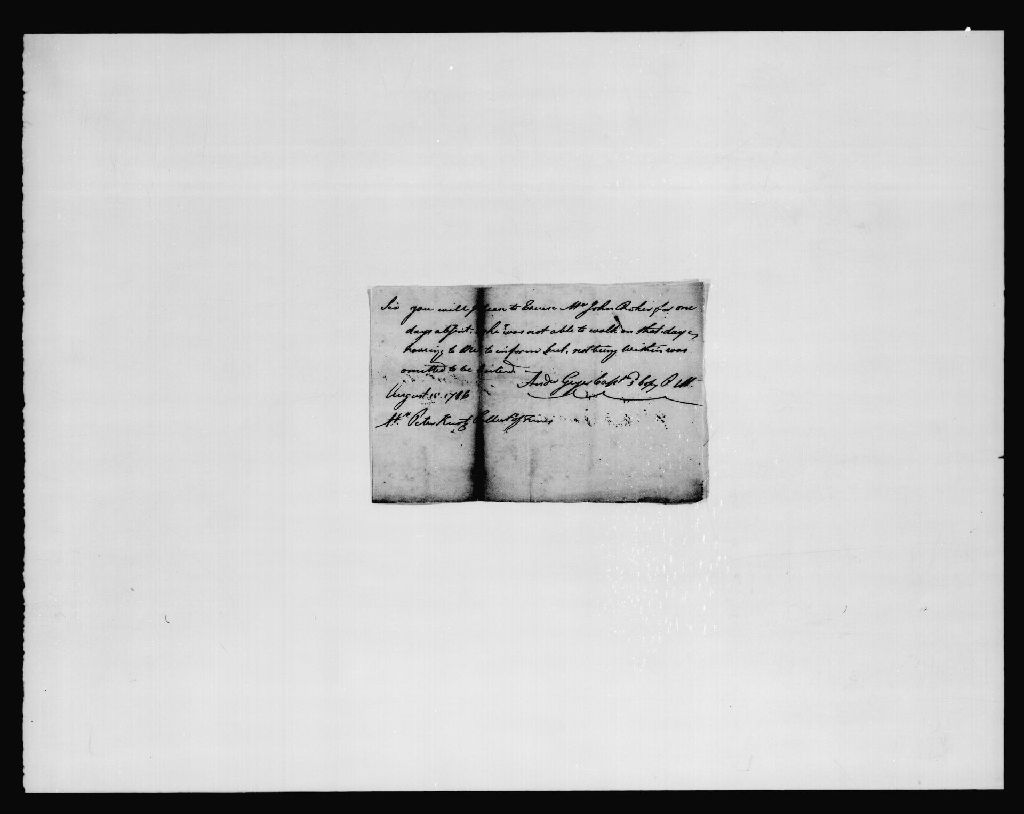 Sir you will please to Excuse Mr John Roker for one
days absent. he was not able to walk on that day &
having to me to inform not being writtin was
omitted to be
August 15 1786 Andw Geyer Capt 3d Copy P M
Mr Peter Knoff Collector of Fines